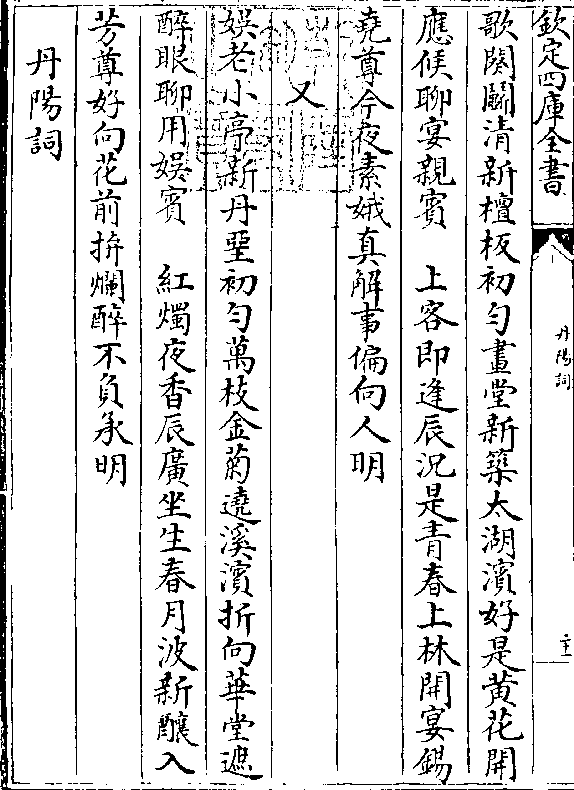 欽定四庫全書
丹陽詞
二十二
歌闋闗清新檀板初勻畫堂新築太湖濱好是黄花開
應候聊宴親賓　上客即逢辰況是青春上林開宴錫
堯尊今夜素娥真解事偏向人明
又
娯老小亭新丹堊初勻萬枝金菊遶溪濱折向華堂遮
醉眼聊用娯賓　紅燭夜香辰廣坐生春月波新釀入
芳尊好向花前拚爛醉不負承明
丹陽詞